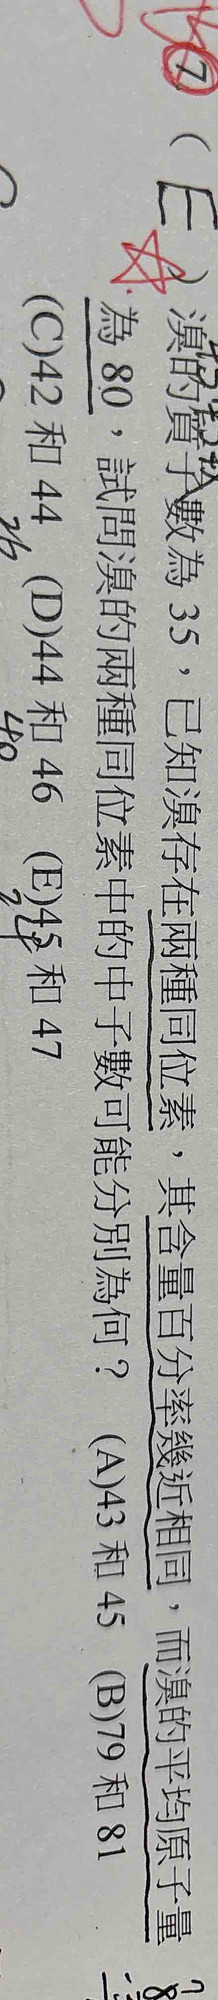 7 ( E ) 溴的質子數為 35，已知溴存在兩種同位素，其含量百分率幾近相同，而溴的平均原子量
為 80，試問溴的兩種同位素中的中子數可能分別為何？ (A)43 和 45 (B)79 和 81
(C)42 和 44 (D)44 和 46 (E)45 和 47